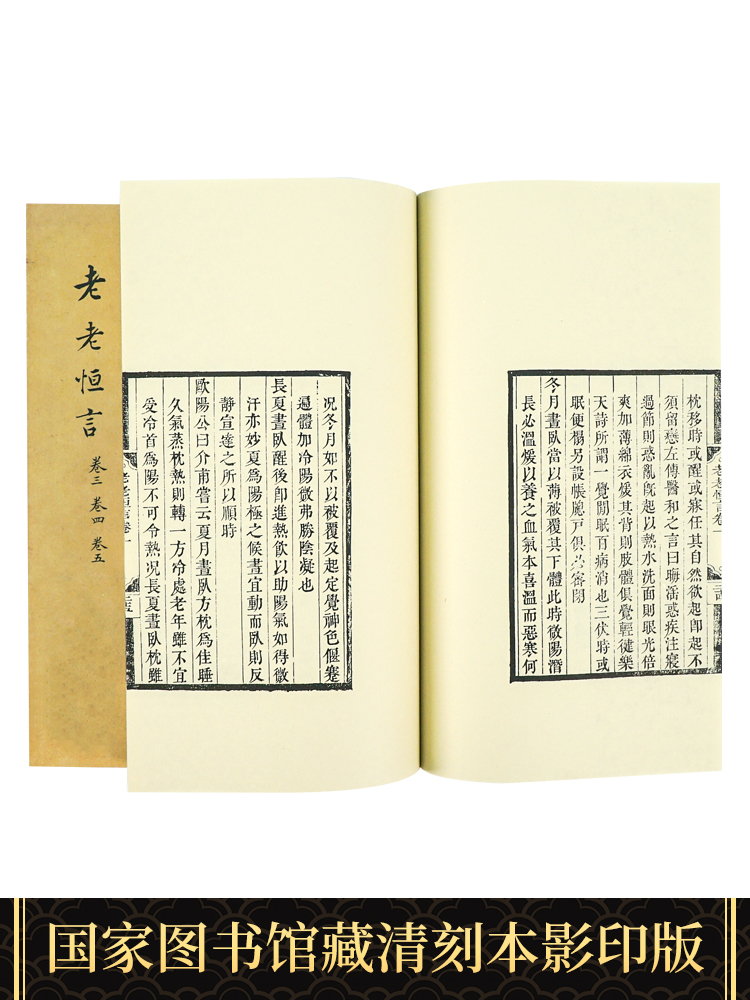 老老恒言
卷三 卷四 卷五
枕移時或醒或寐任其自然欲起卽起不
須留戀左傳醫和之言曰晦淫惑疾注寢
過節則惑亂旣起以熱水洗面則眼光倍
爽加薄綿衣煖其背則肢體俱覺輕健樂
天詩所謂一覺閒眠百病消也三伏時或
眠便榻另設帳牕戶俱必密閉
冬月晝臥當以薄被覆其下體此時微陽潛
長必溫煖以養之血氣本喜溫而惡寒何
况冬月如不以被覆及起定覺神色偃蹇
遍體加冷陽微弗勝陰凝也
長夏晝臥醒後卽進熱飲以助陽氣如得微
汗亦妙夏爲陽極之候晝宜動而臥則反
靜宣達之所以順時
歐陽公曰介甫嘗云夏月晝臥方枕爲佳睡
久氣蒸枕熱則轉一方冷處老年雖不宜
受冷首爲陽不可令熱况長夏晝臥枕雖
老老恒言卷一
国家图书馆藏清刻本影印版